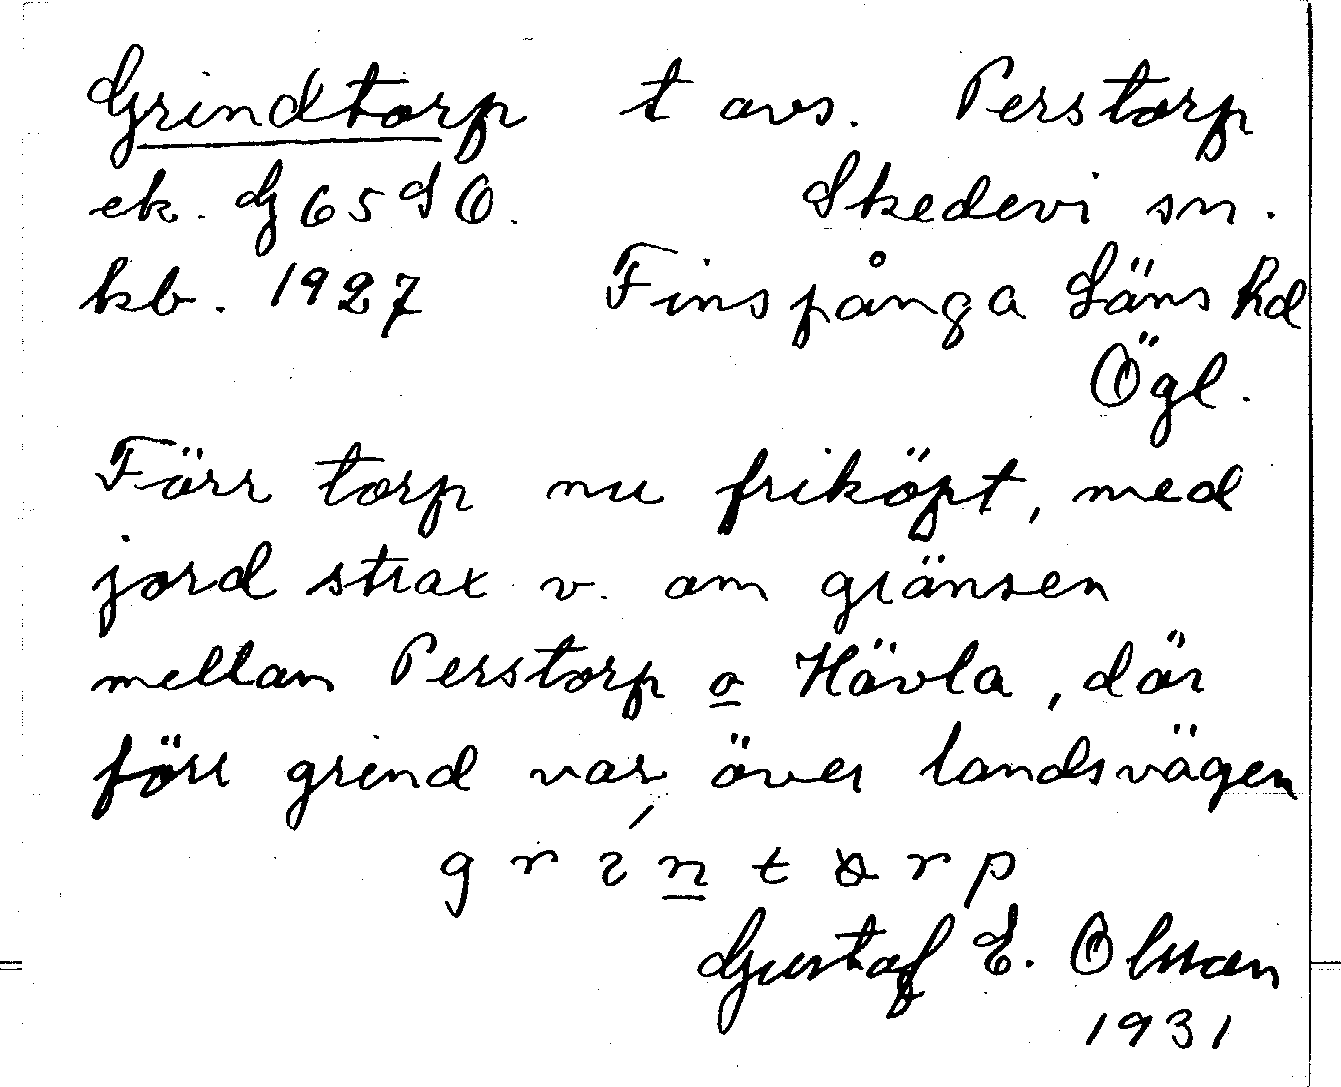 Grindtorp t avs. Perstorp
ek. G 65 S O. Skedevi sn.
kb. 1927 Finspånga Läns hd
Ögl.
Förr torp nu friköpt, med
jord strax v. om gränsen
mellan Perstorp o Hävla, där
förr grind var över landsvägen
Gustaf E. Olsson
1931